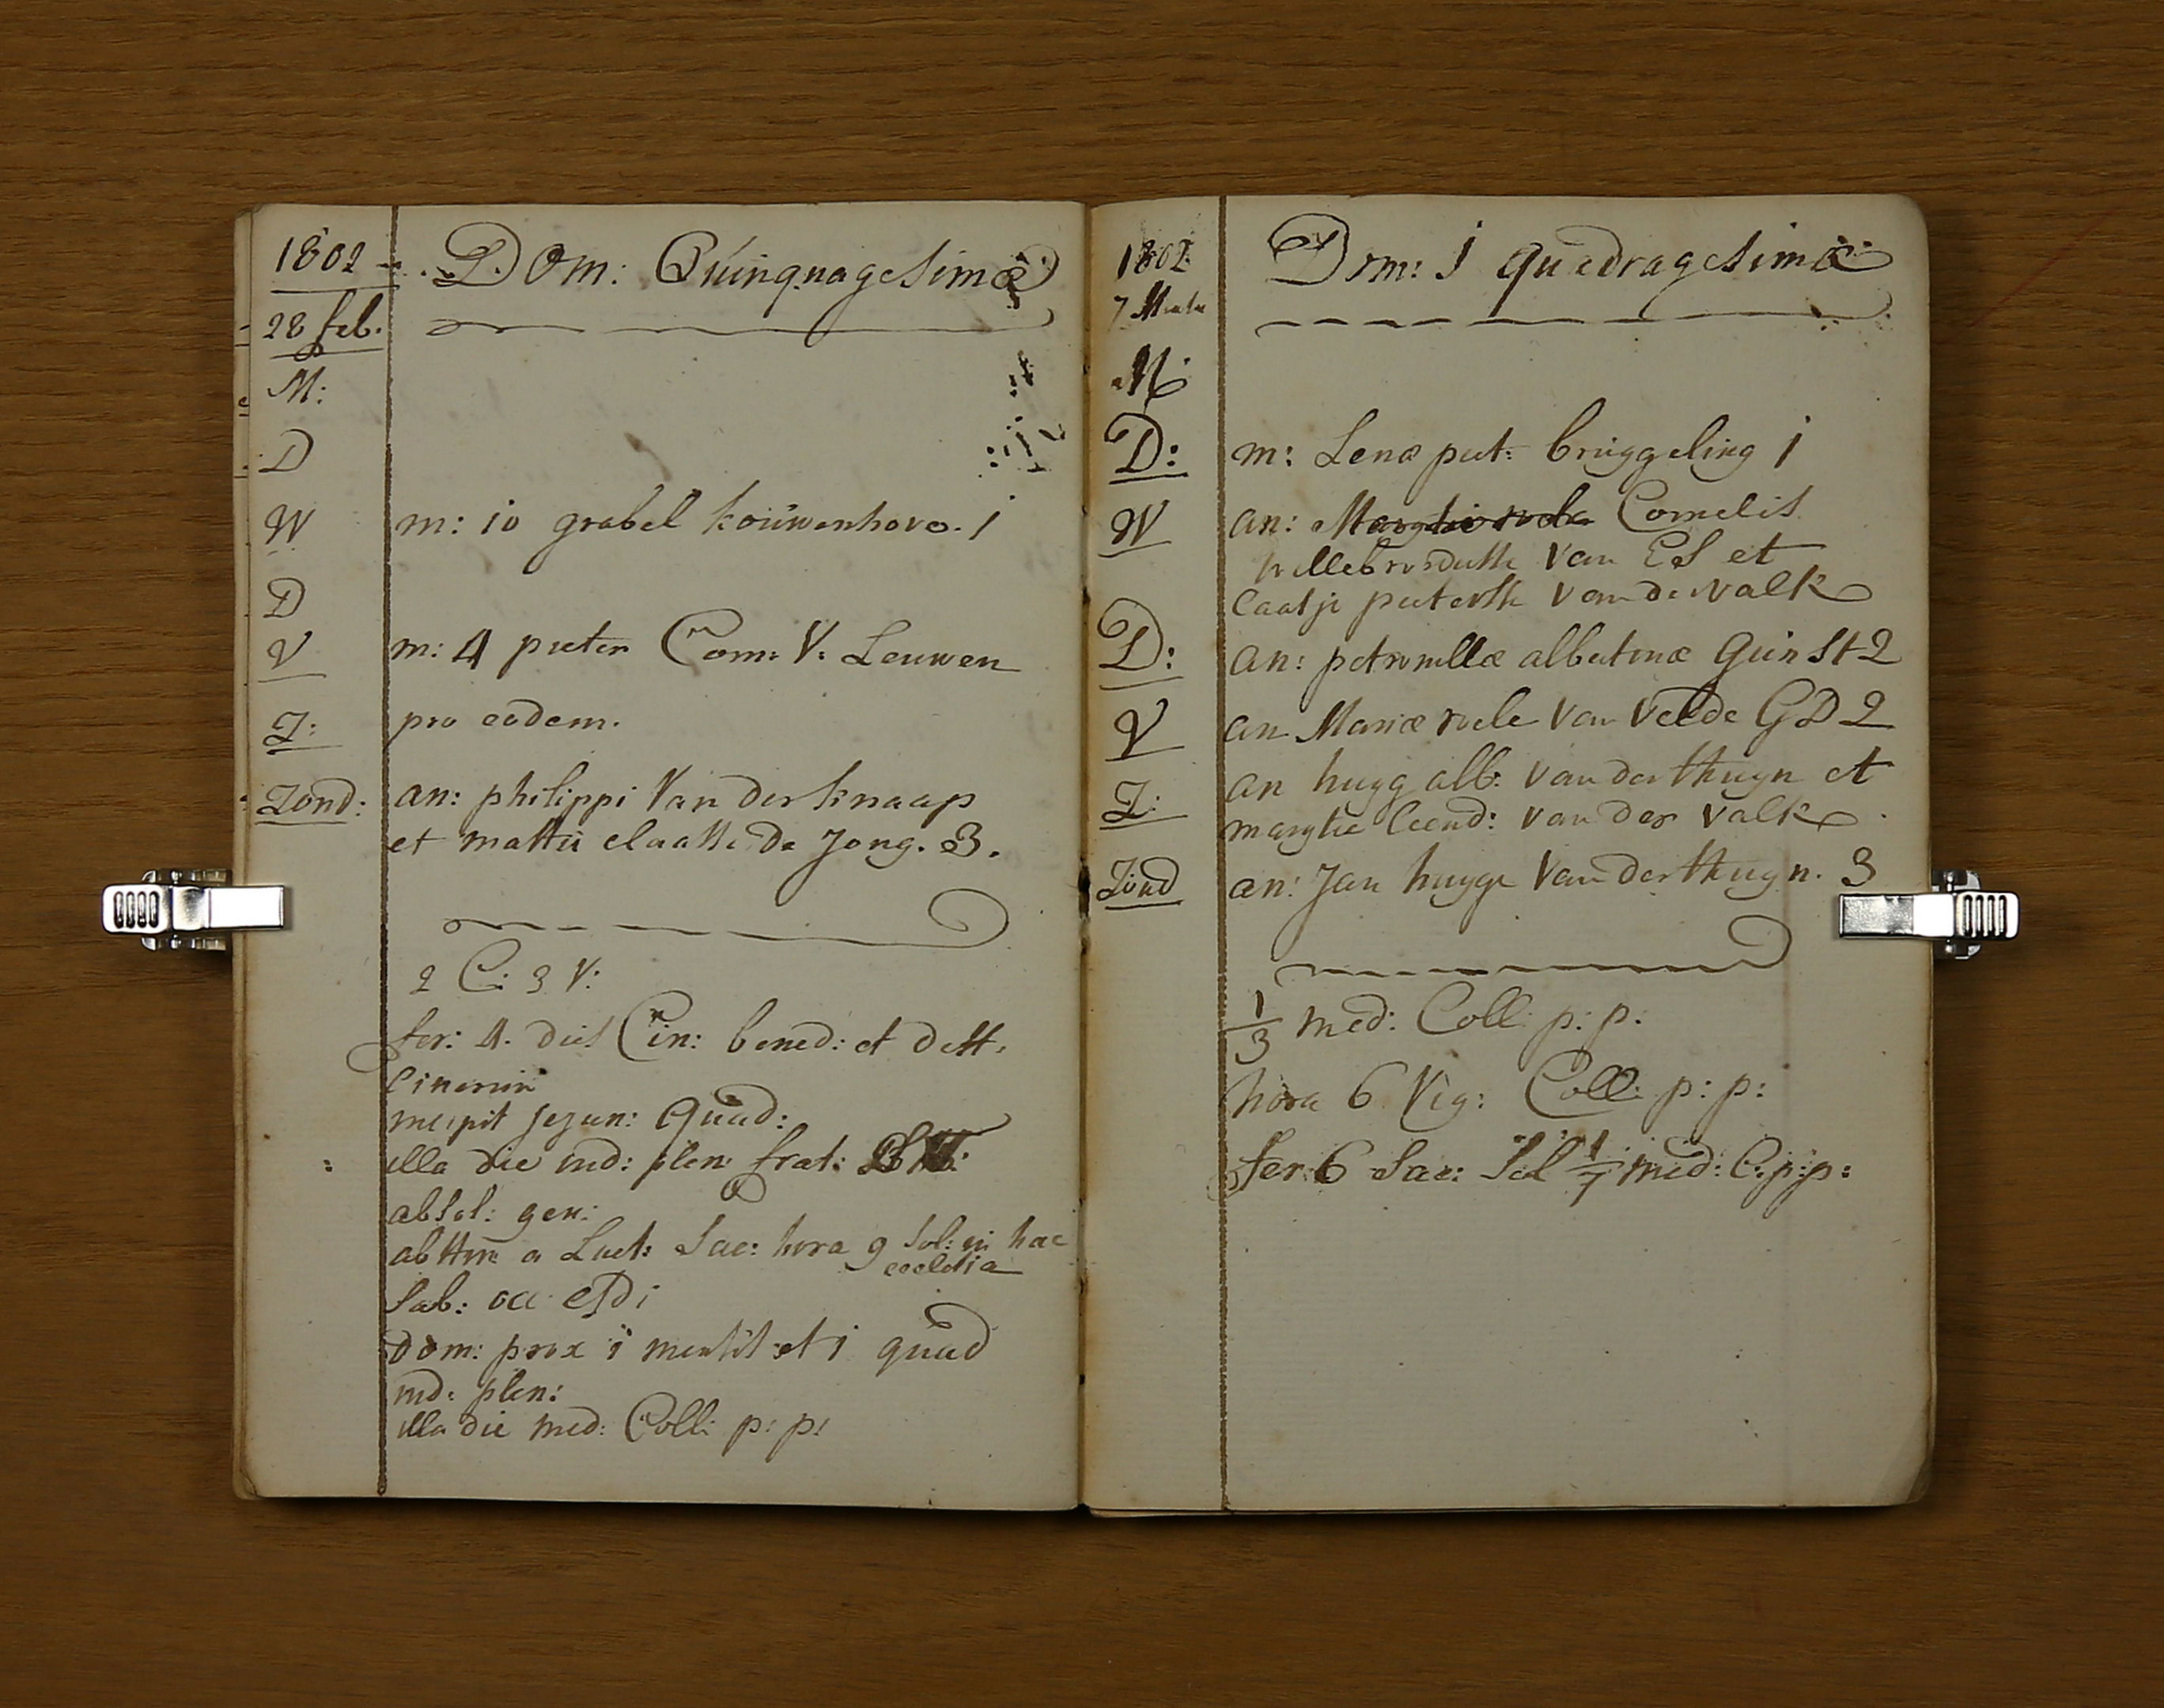 1802
Dom: Quinquagesimæ
28 feb.
M:
D
W m: 10 grabel kouwenhove. j
D
V m: 4 pieter Corn: V: Leuwen
Z: pro eodem.
Zond: an: philippi Van der knaap
et mattii claasse De Jong. 3.
2 C: 3 V:
fer: 4. dies Cin: bened: et dist.
Cinerum
incipit jejun: Quad:
illa die ind: plen: frat:
absol: gen:
abstin: a Lact: Sac: hora 9 sol: in hac
ecclesia
Sab: occ
Dom: prox i mensis et i quad
ind: plen:
illa die med: Coll: p: p:
1802
Dom: j quadragesimæ
7
M
D: m: Lenæ piet: bruggeling j
W an: Cornelis
willebrordusse Van ES et
Caatje pieterse Van de Valk
D: an: petronillæ albertinæ Gunst 2
V an Mariæ roele Van Velde GD 2
Z: an huyg alb: Van der thuyn et
marytie leend: Van der Valk
Zond an: Jan huyge Van der thuyn. 3
1/3 med: Coll: p: p:
hora 6 Vig: Coll: p: p:
fer: 6 Sac: Sol 1/7 med: C: p: p: